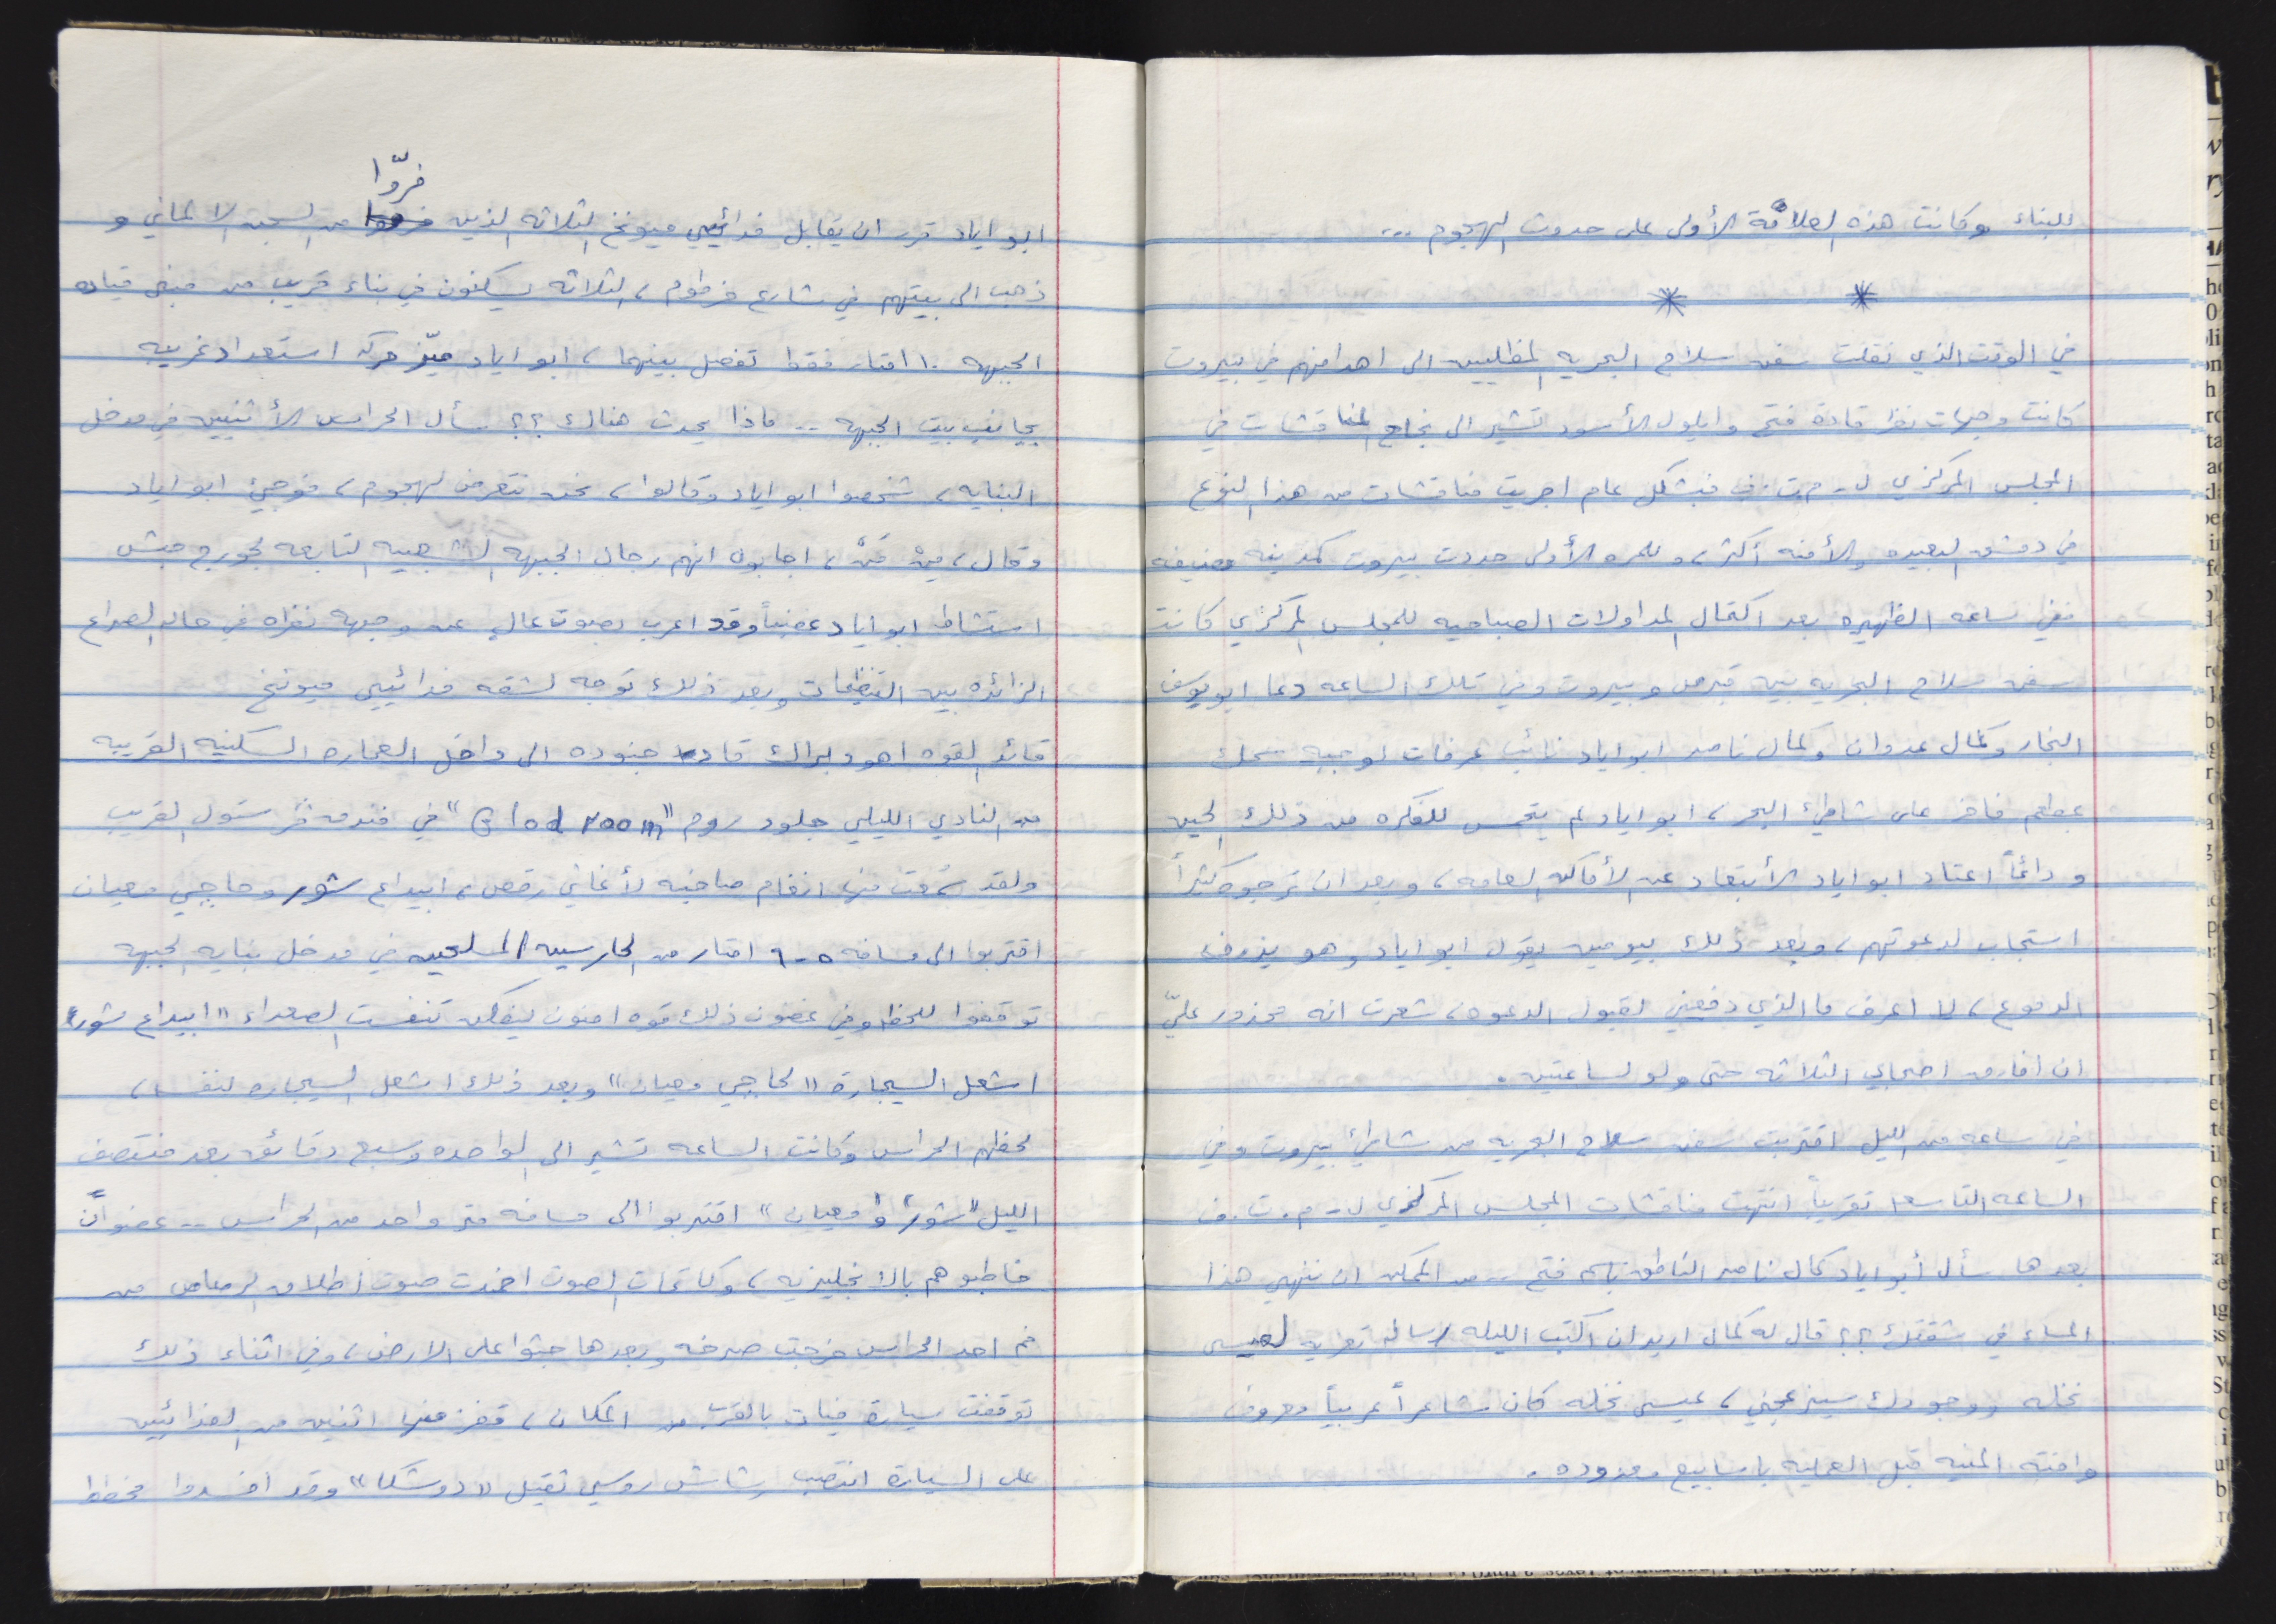 للبناء وكانت هذه العلامة الأولى على حدوث الهجوم ...
* *
في الوقت الذي نقلت سفن سلاح البحريه المظليين الى اهدافهم في بيروت
كانت وجهات نظر قادة فتح وايلول الأسود تشير الى نجاح المناقشات في
المجلس المركزي ل. م.ت.ف فبشكل عام اجريت مناقشات من هذا النوع
في دمشق البعيده والأمنه أكثر، وللمره الأولى حددت بيروت كمدينه مضيفه
ففي ساعه الظهيره بعد اكتمال المداولات الصباحيه للمجلس المركزي كانت
سفن سلاح البحريه بين قبرص وبيروت وفي تلك الساعه دعا ابو يوسف
النجار وكمال عدوان وكمال ناصر ابو اياد نائب عرفات لوجبه سمك
بمطعم فاخر على شاطئ البحر، ابو اياد لم يتحمس للفكره من ذلك الحين
ودائماً اعتاد ابو اياد الأبتعاد عن الأماكن العامه، وبعد ان ترجوه كثيراً
استجاب لدعوتهم، وبعد ذلك بيومين يقول ابو اياد وهو يذرف
الدموع، لا اعرف ما الذي دفعني لقبول الدعوه، شعرت انه محذور عليّ
ان افارق اصحابي الثلاثه حتى ولو لساعتين.
في ساعه من الليل اقتربت سفن سلاح البحريه من شاطئ بيروت وفي
الساعه التاسعه تقريباً انتهت مناقشات المجلس المركزي ل. م.ت.ف
بعدها سأل أبو اياد كمال ناصر الناطق باسم فتح .. من الممكن ان ننهي هذا
المساء في شقتك ؟؟ قال له كمال اريد ان اكتب الليله رساله تعزيه لعيسى
نخله ووجودك سيزعجني، عيسى نخله كان شاعراً عربياً معروف
وافته المنيه قبل العمليه باسابيع معدوده.
ابو اياد قرر ان يقابل فدائيي ميونخ الثلاثه الذين فرّوا من السجن الالماني و
ذهب الى بيتهم في شارع خرطوم، الثلاثه يسكنون في بناء قريب من مبنى قياده
الجبهه ١٠ امتار فقط تفصل بينهما، ابو اياد ميّز حركه استعداد غريبه
بجانب بيت الجبهه .. ماذا يحدث هنالك ؟؟ سأل الحراس الأثنين في مدخل
البنايه، شخصوا ابو اياد وقالوا، نحن نتعرض لهجوم، فوجئ ابو اياد
وقال، مِن مَن، اجابوه انهم رجال الجبهه الشعبيه التابعه لجورج حبش
استشاط ابو اياد غضباً وقد اعرب بصوت عالي عن وجهه نظره في حاله الصراع
الزائده بين التنظيمات وبعد ذلك توجه لشقه فدائيي ميونخ
قائد القوه اهود براك قاد جنوده الى داخل العماره السكنيه القريبه
من النادي الليلي جلود روم "Glod room" في فندق القريب
ولقد سُمعت منه انغام صاخبه لأغاني رقص، ابيداع شور وحاجي معيان
اقتربوا الى مسافه ٥-٦ امتار من الحارسين المسلحين في مدخل بنايه الجبهه
توقفوا للحظه وفي غضون ذلك قوه امنون ليفكن تنفست الصعداء "ابيداع شور"
اشعل السيجارة "لحاجي معيان" وبعد ذلك اشعل السيجاره لنفسه،
لحظهم الحراس وكانت الساعه تشير الى الواحده وسبع دقائق بعد منتصف
الليل "شور" و "معيان" اقتربوا الى مسافه متر واحد من الحراس .. عفواً
خاطبوهم بالانجليزيه، وكاتمات الصوت اخمدت صوت اطلاق الرصاص من
فم احد الحراس خرجت صرخه وبعدها جثوا على الارض، وفي اثناء ذلك
توقفت سيارة فيات بالقرب من المكان، قفز منها اثنين من الفدائيين
على السيارة انتصب رشاش روسي ثقيل "دوشكا" وقد افسدوا مخطط